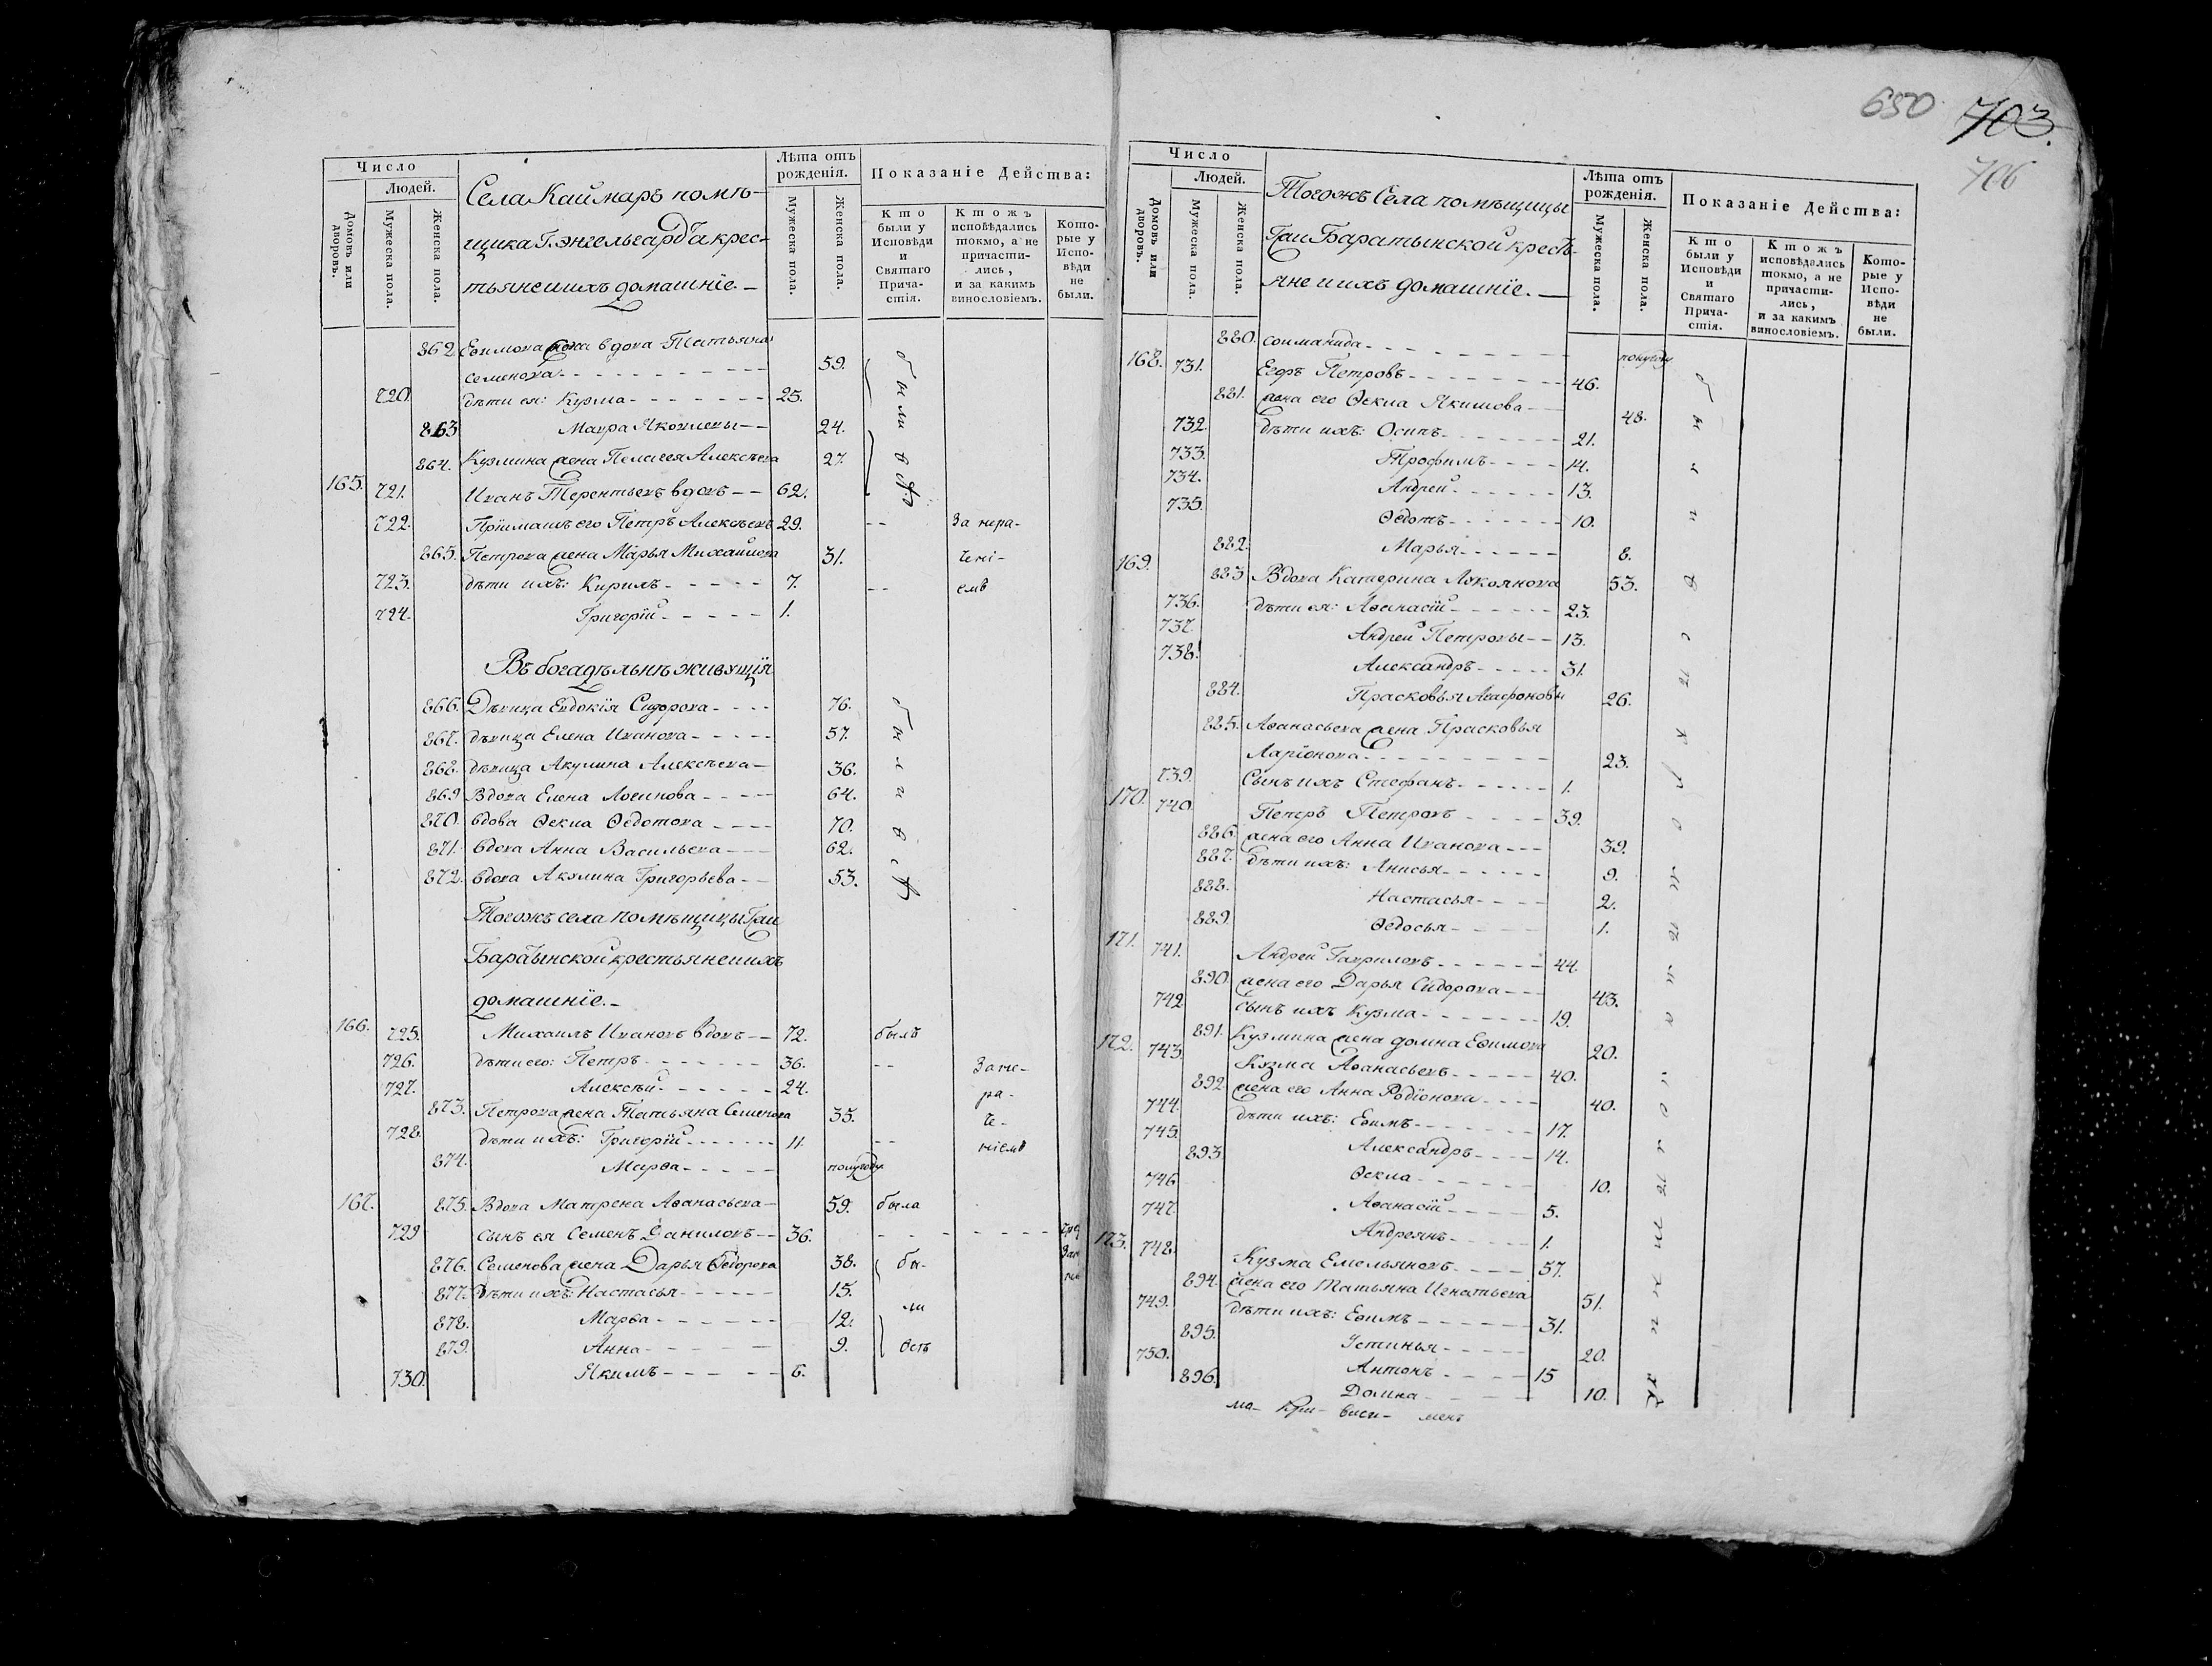 650
703.
706
Число
Людей.
Домовъ или дворовъ.
Мужеска пола.
Женска пола.
Села Каймаръ помѣ-
щика Г. Энгельгардта крес-
тьяне и ихъ домашнїе. —
Лѣта отъ рожденія.
Мужеска пола.
Женска пола.
Показаніе Действа:
Кто были у Исповѣди и Святаго Причастія.
Ктожъ исповѣдались токмо, а не причастились, и за какимъ винословіемъ.
Которые у Исповѣди не были.
862 Ефимова жена вдова Татьяна
Семенова 59.
720. дѣти ея: Кузма 25.
863 Мавра Яковлевы 24.
864. Кузмина жена Пелагея Алексѣева 27.
165. 721. Иванъ Терентьевъ вдовъ 62.
722. Приймашъ его Петръ Алексѣевъ 29.
865. Петрова жена Марья Михайлова 31.
723. дѣти ихъ: Кирилъ 7.
724. Григорїй 1.
Въ богадѣльнѣ живущїя
866. Дѣвица Евдокїя Сидорова 76.
867. дѣвица Елена Иванова 57.
868. дѣвица Акулина Алексѣева 36.
869 Вдова Елена Логинова 64.
870. вдова Ѳекла Ѳедотова 70.
871. вдова Анна Васильева 62.
872. вдова Акулина Григорьева 53.
Тогожъ села помѣщицы Гжи
Баратынской крестьяне и ихъ
домашнїе.
166. 725. Михаилъ Ивановъ вдовъ 72. былъ
726. дѣти его: Петръ 36.
727. Алексѣй 24.
873. Петрова жена Татьяна Семенова 35.
728. дѣти ихъ: Григорїй 11
874. Марѳа полугоду
167. 875. Вдова Матрена Аѳанасьева 59. была
729 сынъ ея Семенъ Даниловъ 36.
876. Семенова жена Дарья Ѳедорова 38.
877. Дѣти ихъ: Настасья 15.
878. Марѳа 12.
879. Анна 9.
730. Якимъ 6.
Число
Людей.
Домовъ или дворовъ.
Мужеска пола.
Женска пола.
Тогожъ Села помѣщицы
Гжи Баратынской кресть-
яне и ихъ домашнїе. —
Лѣта отъ рожденія.
Мужеска пола.
Женска пола.
Показаніе Действа:
Кто были у Исповѣди и Святаго Причастія.
Ктожъ исповѣдались токмо, а не причастились, и за какимъ винословіемъ.
Которые у Исповѣди не были.
880. соиманида полугоду
168. 731. Егоръ Петровъ 46.
881. жена его Ѳекла Якимова 48.
732. дѣти ихъ: Осипъ 21.
733. Трофимъ 14.
734. Андрей 13.
735. Ѳедотъ 10.
882. Марья 8.
169. 883 Вдова Катерина Лукоянова 53.
736. дѣти ея: Аѳанасїй 23.
737. Андрей Петровы 13.
738. Александръ 31.
884. Прасковья Агафоновы 26.
885. Аѳанасьева жена Прасковья
Ларїонова 23.
739. Сынъ ихъ Стефанъ 1.
170. 740. Петръ Петровъ 39.
886. жена его Анна Иванова 39.
887. дѣти ихъ: Анисья 9.
888. Настасья 2.
889. Ѳедосья 1.
171. 741. Андрей Гавриловъ 44.
890. жена его Дарья Сидорова 43.
742 сынъ ихъ Кузма 19.
891. Кузмина жена Домна Ефимова 20.
172. 743. Кузма Аѳанасьевъ 40.
892. жена его Анна Родїонова 40.
744. дѣти ихъ: Ефимъ 17.
745. Александръ 14.
893. Ѳекла 10.
746. Аѳанасїй 5.
747. Андреянъ 1.
173. 748. Кузма Емельяновъ 57.
894. жена его Татьяна Игнатьева 51.
749. дѣти ихъ: Ефимъ 31.
895. Устинья 20.
750. Антонъ 15
896. Домна 10.